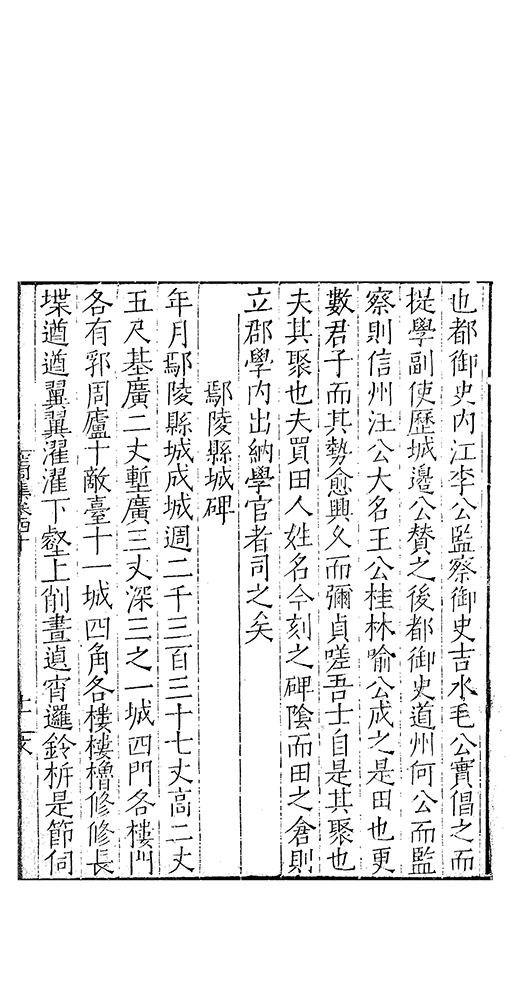 也都御史内江李公監察御史吉水毛公實倡之而
提學副使歷城邊公賛之後都御史道州何公而監
察則信州汪公大名王公桂林喻公成之是田也更
數君子而其勢愈興久而彌貞嗟吾士自是其聚也
夫其聚也夫買田人姓名今刻之碑陰而田之倉則
立郡學内出納學官者司之矣
鄢陵縣城碑
年月鄢陵縣城成城週二千三百三十七丈高二丈
五尺基廣二丈塹廣三丈深三之一城四門各樓門
各有郛周廬十敵臺十一城四角各樓樓櫓修修長
堞遒遒翼翼濯濯下壑上削晝遉宵邏鈴柝是節伺